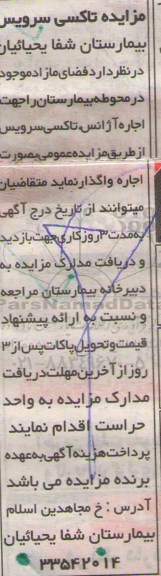 مزایده تاکسی سرویس
بیمارستان شفا یحیائیان
در نظر دارد فضای مازاد موجود
در محوطه بیمارستان را جهت
اجاره آژانس، تاکسی سرویس
از طریق مزایده عمومی بصورت
اجاره واگذار نماید متقاضیان
میتوانند از تاریخ درج آگهی
به مدت ۳ روز کاری جهت بازدید
و دریافت مدارک مزایده به
دبیرخانه بیمارستان مراجعه
و نسبت به ارائه پیشنهاد
قیمت و تحویل پاکات پس از ۳
روز از آخرین مهلت دریافت
مدارک مزایده به واحد
حراست اقدام نمایند
پرداخت هزینه آگهی به عهده
برنده مزایده می باشد
آدرس : خ مجاهدین اسلام
بیمارستان شفا یحیائیان
۳۳۵۴۲۰۱۴